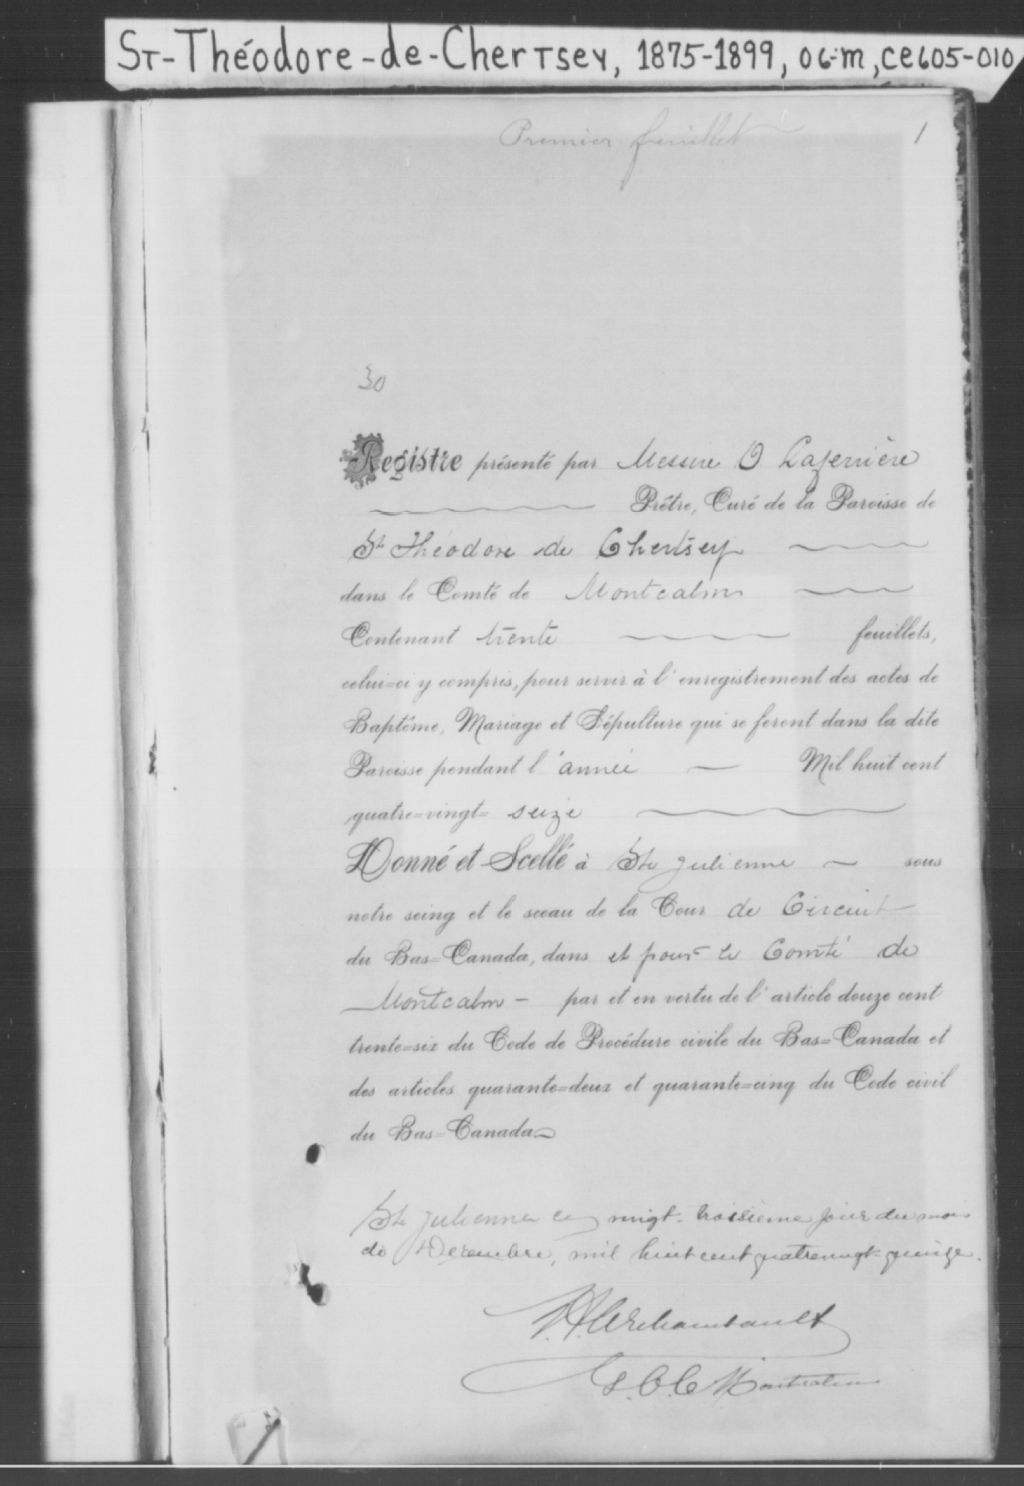 St-Théodore-de-Chertsey, 1875-1899, 06-m, CE605-010
Premier feuillet 1
30
Registre présenté par Messire O Laferrière
Prêtre, Curé de la Paroisse de
St Théodore de Chertsey
dans le Comté de Montcalm
Contenant trente feuillets,
celui=ci y compris, pour servir à l'enregistrement des actes de
Baptême, Mariage et Sépulture qui se feront dans la dite
Paroisse pendant l'année — Mil huit cent
quatre=vingt= seize
Donné et Scellé à Ste Julienne — sous
notre seing et le sceau de la Cour de Circuit
du Bas=Canada, dans et pour le Comté de
Montcalm — par et en vertu de l'article douze cent
trente=six du Code de Procédure civile du Bas=Canada et
des articles quarante=deux et quarante=cinq du Code civil
du Bas=Canada
Ste Julienne ce vingt-troisième jour du mois
de Décembre, mil huit cent quatrevingt-quinze.
Archambault
G.C.C. Montcalm